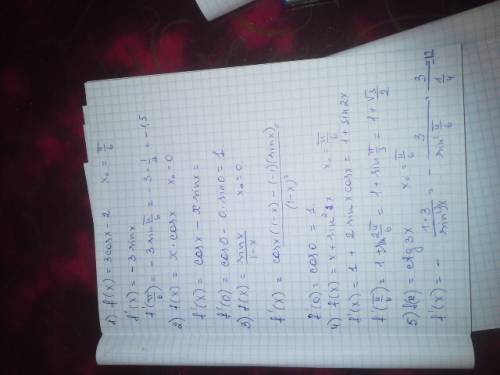 1) f(x) = 3cosx - 2 x₀ = π/6
f'(x) = -3 sinx
f'(π/6) = -3 sin π/6 = -3 · 1/2 = -1,5
2) f(x) = x · cosx x₀ = 0
f'(x) = cosx - x · sinx =
f'(0) = cos0 - 0 · sin0 = 1
3) f(x) = sinx/(1-x) x₀ = 0
f'(x) = (cosx(1-x) - (-1)(sinx))/(1-x)²
f'(0) = cos0 = 1
4) f(x) = x + sin²x x₀ = π/6
f'(x) = 1 + 2 sinx cosx = 1 + sin2x
f'(π/6) = 1 + sin 2π/6 = 1 + sin π/3 = 1 + √3/2
5) f(x) = ctg3x x₀ = π/6
f'(x) = - 1·3/sin²3x = - 3/sin² π/6